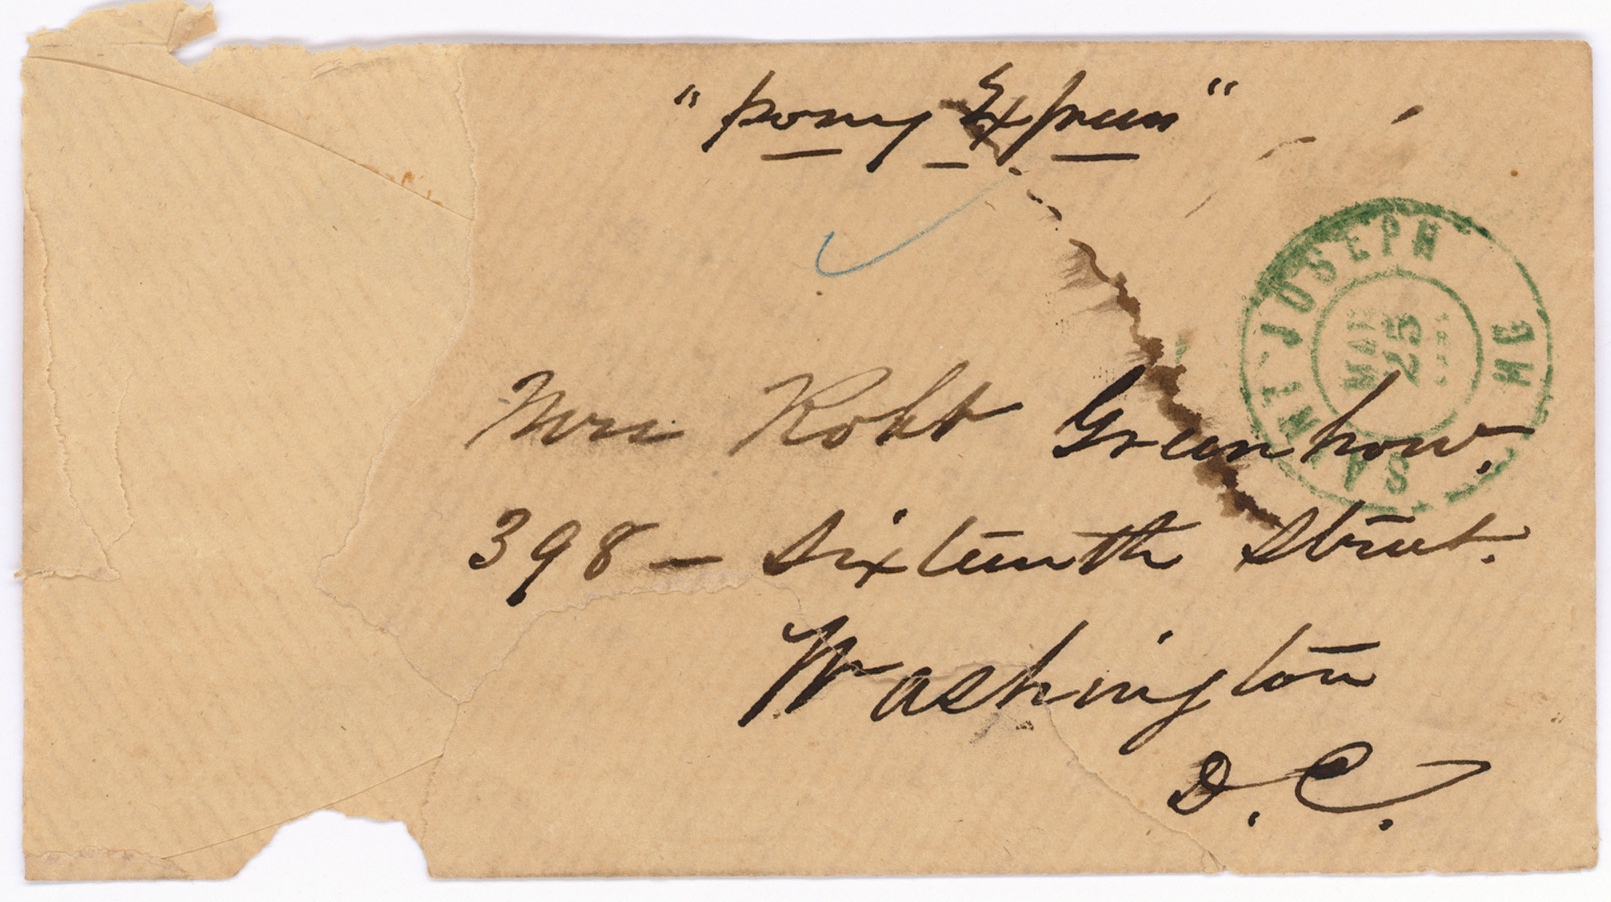 "Pony Express"
SAINT JOSEPH
MAR
25
Mrs Robt Greenhow.
398 — Sixteenth Street.
Washington
D.C.